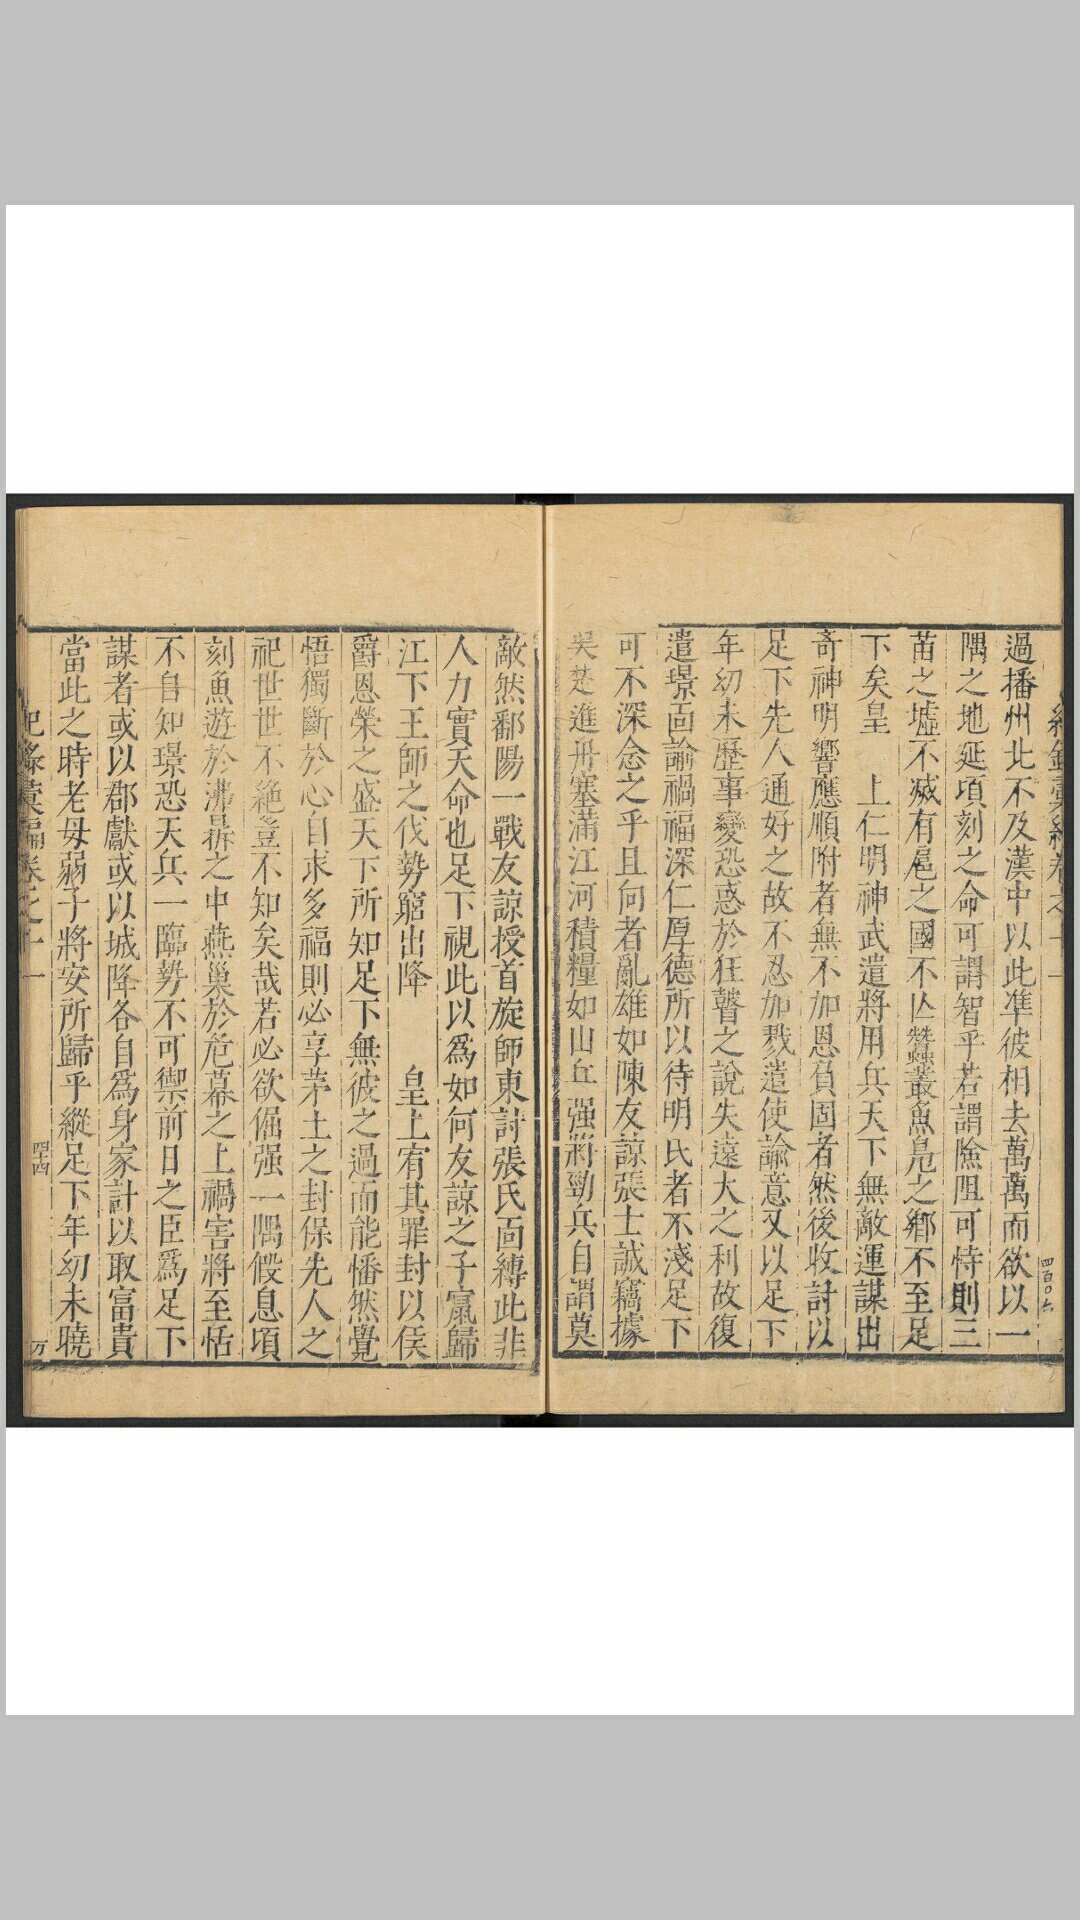 紀錄彙編卷之十一
四百〇六
過播州北不及漢中以此準彼相去萬萬而欲以一
隅之地延頃刻之命可謂智乎若謂險阻可恃則三
苗之墟不滅有扈之國不亾蠶叢魚鳧之鄉不至足
下矣皇 上仁明神武遣將用兵天下無敵運謀出
奇神明響應順附者無不加恩負固者然後收討以
足下先人通好之故不忍加戮遣使諭意又以足下
年幼未歷事變恐惑於狂瞽之說失遠大之利故復
遣璟面諭禍福深仁厚德所以待明氏者不淺足下
可不深念之乎且向者亂雄如陳友諒張士誠竊據
吳楚進冊塞滿江河積糧如山丘强將勁兵自謂莫
敵然鄱陽一戰友諒授首旋師東討張氏面縛此非
人力實天命也足下視此以爲如何友諒之子竄歸
江下王師之伐勢窮出降 皇上宥其罪封以侯
爵恩榮之盛天下所知足下無彼之過而能幡然覺
悟獨斷於心自求多福則必享茅土之封保先人之
祀世世不絶豈不知矣哉若必欲倔强一隅假息頃
刻魚遊於沸鼎之中燕巢於危幕之上禍害將至恬
不自知璟恐天兵一臨勢不可禦前日之臣爲足下
謀者或以郡獻或以城降各自爲身家計以取富貴
當此之時老母弱子將安所歸乎縱足下年幼未曉
紀錄彙編卷之十一
四十四
万